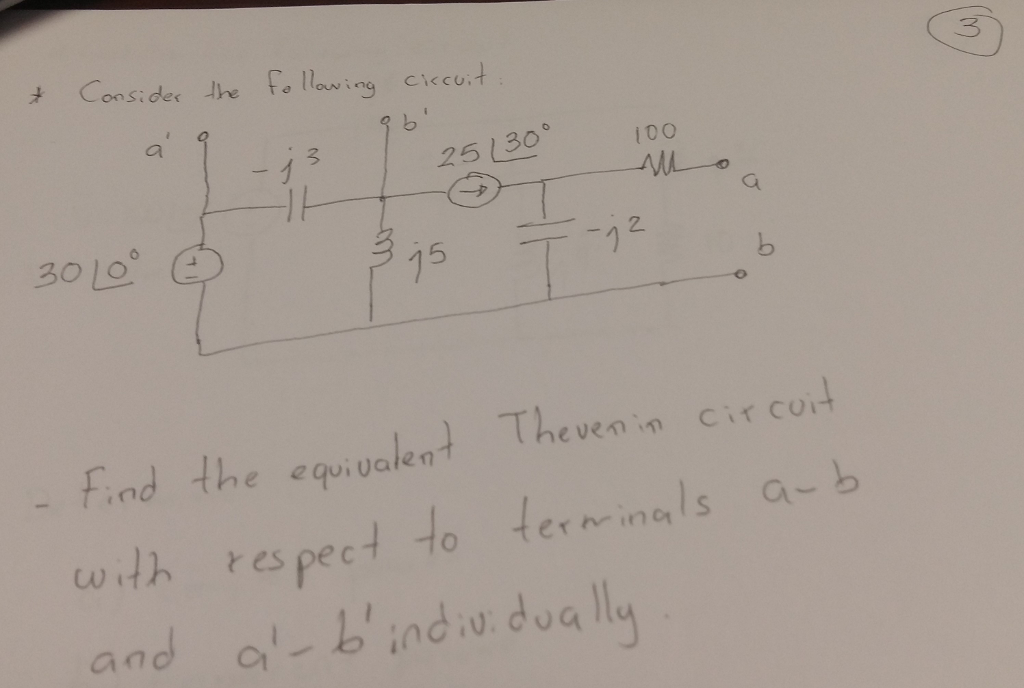 3
* Consider the following circuit:
a' b'
-j3 25∠30° 100
a
30∠0° j5 -j2 b
- Find the equivalent Thevenin circuit
with respect to terminals a-b
and a'-b' individually.